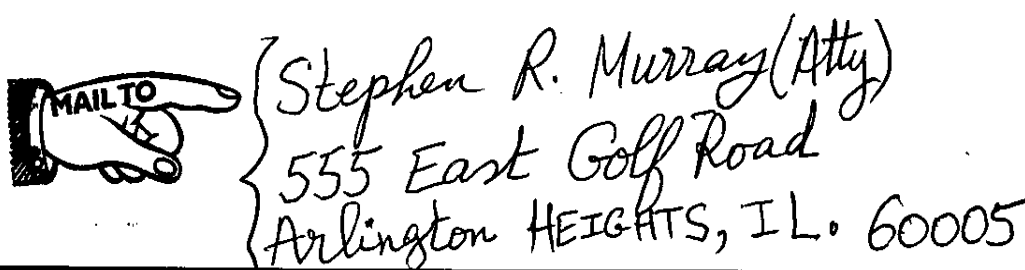 MAIL TO
Stephen R. Murray (Atty)
555 East Golf Road
Arlington HEIGHTS, IL. 60005